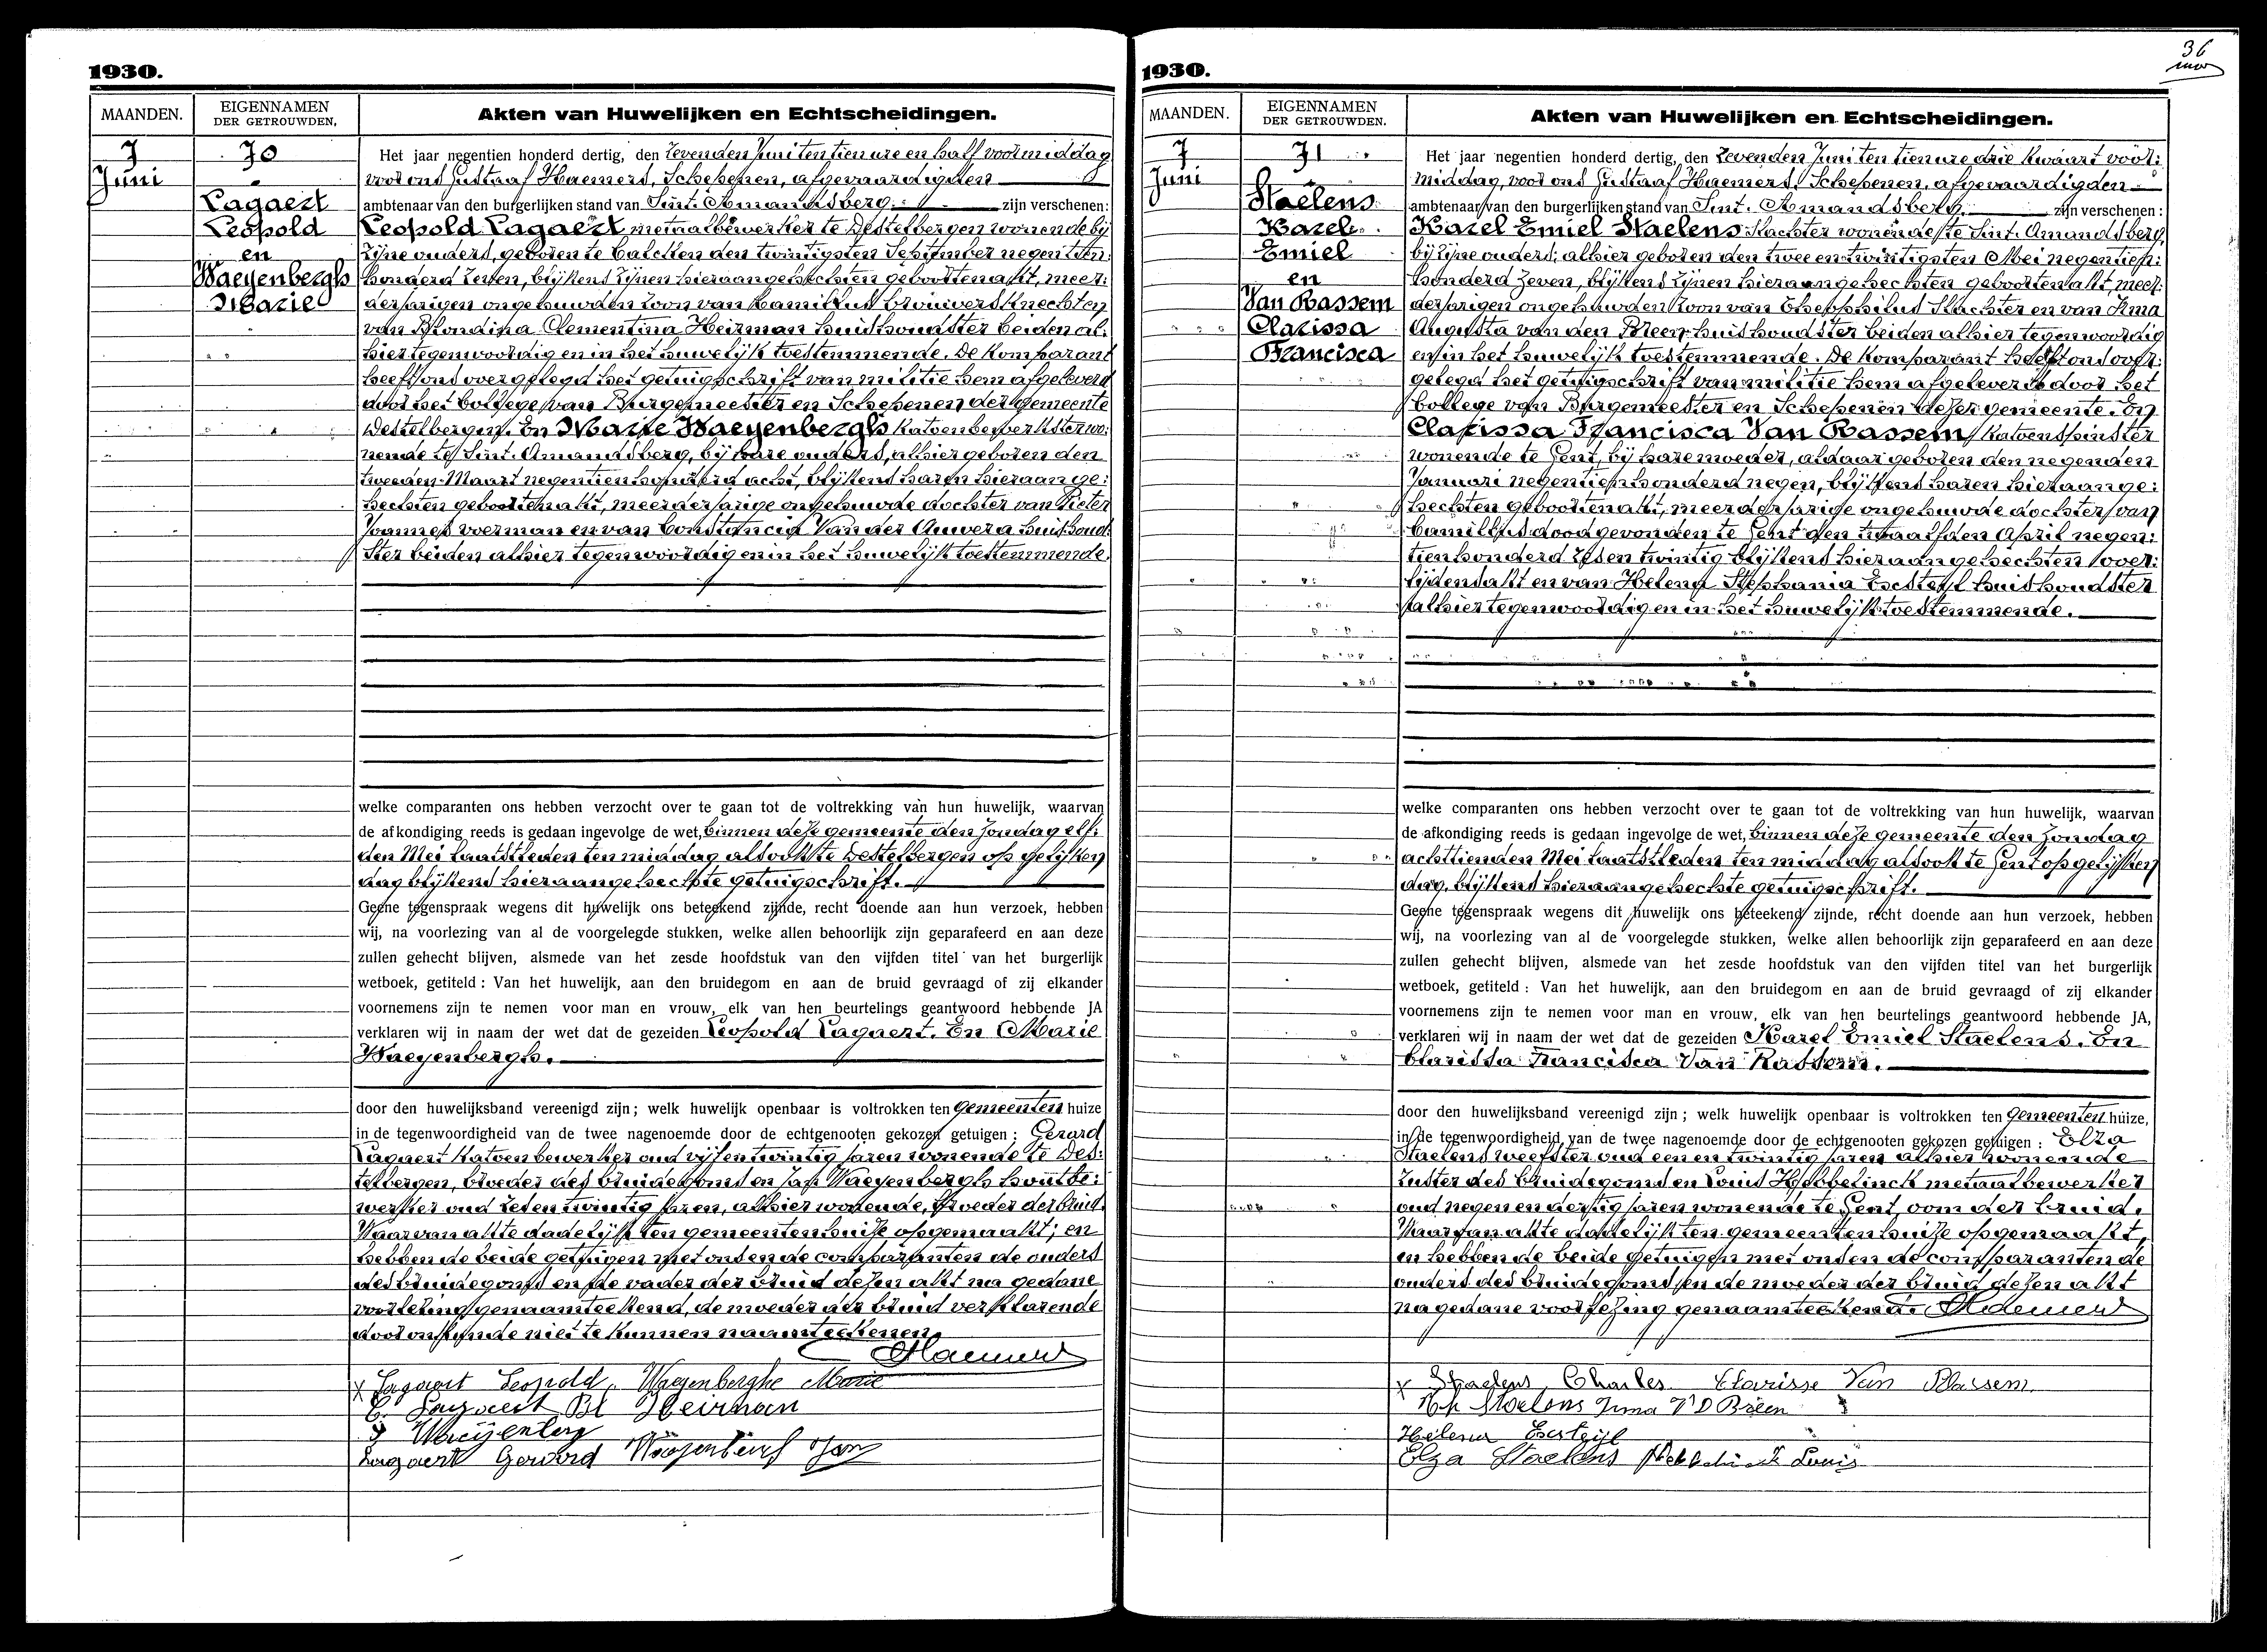 1930.
MAANDEN. EIGENNAMEN DER GETROUWDEN. Akten van Huwelijken en Echtscheidingen.
7 Juni
70
Lagaert
Leopold
en
Waeyenbergh
Marie
Het jaar negentien honderd dertig, den zevenden Juni ten tien ure en half voormiddag
voor ons Gustaaf Haemers, Schepenen, afgevaardigden
ambtenaar van den burgerlijken stand van Sint-Amandsberg. zijn verschenen:
Leopold Lagaert metaalbewerker te Destelbergen wonende bij
zijne ouders, geboren te Calcken den twintigsten September negentien
honderd zeven, blijkens zijnen hieraangehechten geboortenakt, meer:
derjarigen ongehuwden zoon van Kamillus brouwersknecht en
van Blondina Clementina Heirman huishoudster beiden al:
hier tegenwoordig en in het huwelijk toestemmende. De komparant
heeft ons overgelegd het getuigschrift van militie hem afgeleverd
door het Collegie van Burgemeester en Schepenen der gemeente
Destelbergen. En Marie Waeyenbergh katoenbewerkster wo:
nende te Sint-Amandsberg, bij hare ouders, alhier geboren den
tweeden Maart negentien honderd acht, blijkens haren hieraan ge:
hechten geboortenakt, meerderjarige ongehuwde dochter van Pieter
Joannes voerman en van Constancia Van der Auwera huishoud:
ster beiden alhier tegenwoordig en in het huwelijk toestemmende.
welke comparanten ons hebben verzocht over te gaan tot de voltrekking van hun huwelijk, waarvan
de afkondiging reeds is gedaan ingevolge de wet, binnen deze gemeente den Zondag elf:
den Mei laatstleden ten middag alsook te Destelbergen op gelijken
dag blijkens hieraangehechte getuigschrift.
Geene tegenspraak wegens dit huwelijk ons beteekend zijnde, recht doende aan hun verzoek, hebben
wij, na voorlezing van al de voorgelegde stukken, welke allen behoorlijk zijn geparafeerd en aan deze
zullen gehecht blijven, alsmede van het zesde hoofdstuk van den vijfden titel van het burgerlijk
wetboek, getiteld : Van het huwelijk, aan den bruidegom en aan de bruid gevraagd of zij elkander
voornemens zijn te nemen voor man en vrouw, elk van hen beurtelings geantwoord hebbende JA
verklaren wij in naam der wet dat de gezeiden Leopold Lagaert. En Marie
Waeyenbergh.
door den huwelijksband vereenigd zijn; welk huwelijk openbaar is voltrokken ten Gemeenten huize
in de tegenwoordigheid van de twee nagenoemde door de echtgenooten gekozen getuigen : Gerard
Lagaert katoenbewerker oud vijf en twintig jaren wonende te Des:
telbergen, broeder des bruidegoms en Jan Waeyenbergh houtbe:
werker oud zes en twintig jaren, alhier wonende, broeder der bruid.
Waarvan akte dadelijk ten gemeentenhuize opgemaakt; en
hebben de beide getuigen met ons en de comparanten de ouders
des bruidegoms en de vader der bruid dezen akt na gedane
voorlezing genaamteekend, de moeder der bruid verklarende
door onkunde niet te kunnen naamteekenen.
Haemers
x Lagaert Leopold, Waeyenberghe Marie
C. Lagaert Bl Heirman
Lagaert Gerard
1930.
36
MAANDEN. EIGENNAMEN DER GETROUWDEN. Akten van Huwelijken en Echtscheidingen.
7 Juni
71
Staelens
Karel
Emiel
en
Van Bassem
Clarissa
Francisca
Het jaar negentien honderd dertig, den zevenden Juni ten tien ure drie kwaart voor:
middag, voor ons Gustaaf Haemers, Schepenen, afgevaardigden
ambtenaar van den burgerlijken stand van Sint-Amandsberg. zijn verschenen :
Karel Emiel Staelens slachter wonende te Sint-Amandsberg,
bij zijne ouders; alhier geboren den twee en twintigsten Mei negentien:
honderd zeven, blijkens zijnen hieraangehechten geboortenakt, meer:
derjarigen ongehuwden zoon van Theophilus slachter en van Irma
Augusta van den Breen, huishoudster beiden alhier tegenwoordig
en in het huwelijk toestemmende. De komparant heeft ons over:
gelegd het getuigschrift van militie hem afgeleverd door het
Collegie van Burgemeester en Schepenen dezer gemeente. En
Clarissa Francisca Van Bassem, katoenspinster
wonende te Gent, bij hare moeder, aldaar geboren den negenden
Januari negentien honderd negen, blijkens haren hieraange:
hechten geboortenakt, meerderjarige ongehuwde dochter van
Camillus dood gevonden te Gent den twaalfden April negen:
tien honderd zes en twintig blijkens hieraangehechten over:
lijdensakt en van Helena Stephania Eecsteyl huishoudster
alhier tegenwoordig en in het huwelijk toestemmende.
welke comparanten ons hebben verzocht over te gaan tot de voltrekking van hun huwelijk, waarvan
de afkondiging reeds is gedaan ingevolge de wet, binnen deze gemeente den Zondag
achttienden Mei laatstleden ten middag alsook te Gent op gelijken
dag, blijkens hieraangehechte getuigschrift.
Geene tegenspraak wegens dit huwelijk ons beteekend zijnde, recht doende aan hun verzoek, hebben
wij, na voorlezing van al de voorgelegde stukken, welke allen behoorlijk zijn geparafeerd en aan deze
zullen gehecht blijven, alsmede van het zesde hoofdstuk van den vijfden titel van het burgerlijk
wetboek, getiteld : Van het huwelijk, aan den bruidegom en aan de bruid gevraagd of zij elkander
voornemens zijn te nemen voor man en vrouw, elk van hen beurtelings geantwoord hebbende JA,
verklaren wij in naam der wet dat de gezeiden Karel Emiel Staelens. En
Clarissa Francisca Van Bassem.
door den huwelijksband vereenigd zijn ; welk huwelijk openbaar is voltrokken ten Gemeenten huize,
in de tegenwoordigheid van de twee nagenoemde door de echtgenooten gekozen getuigen : Elza
Staelens weefster oud een en twintig jaren alhier wonende
zuster des bruidegoms en Louis Hebbelinck metaalbewerker
oud negen en dertig jaren wonende te Gent, oom der bruid.
Waarvan akte dadelijk ten gemeentenhuize opgemaakt,
en hebben de beide getuigen met ons en de comparanten de
ouders des bruidegoms en de moeder der bruid dezen akt
na gedane voorlezing genaamteekend. Haemers
x Staelens Charles Clarisse Van Bassem
Staelens Irma VD Breen
Helena
Elza Staelens Hebbelinck Louis